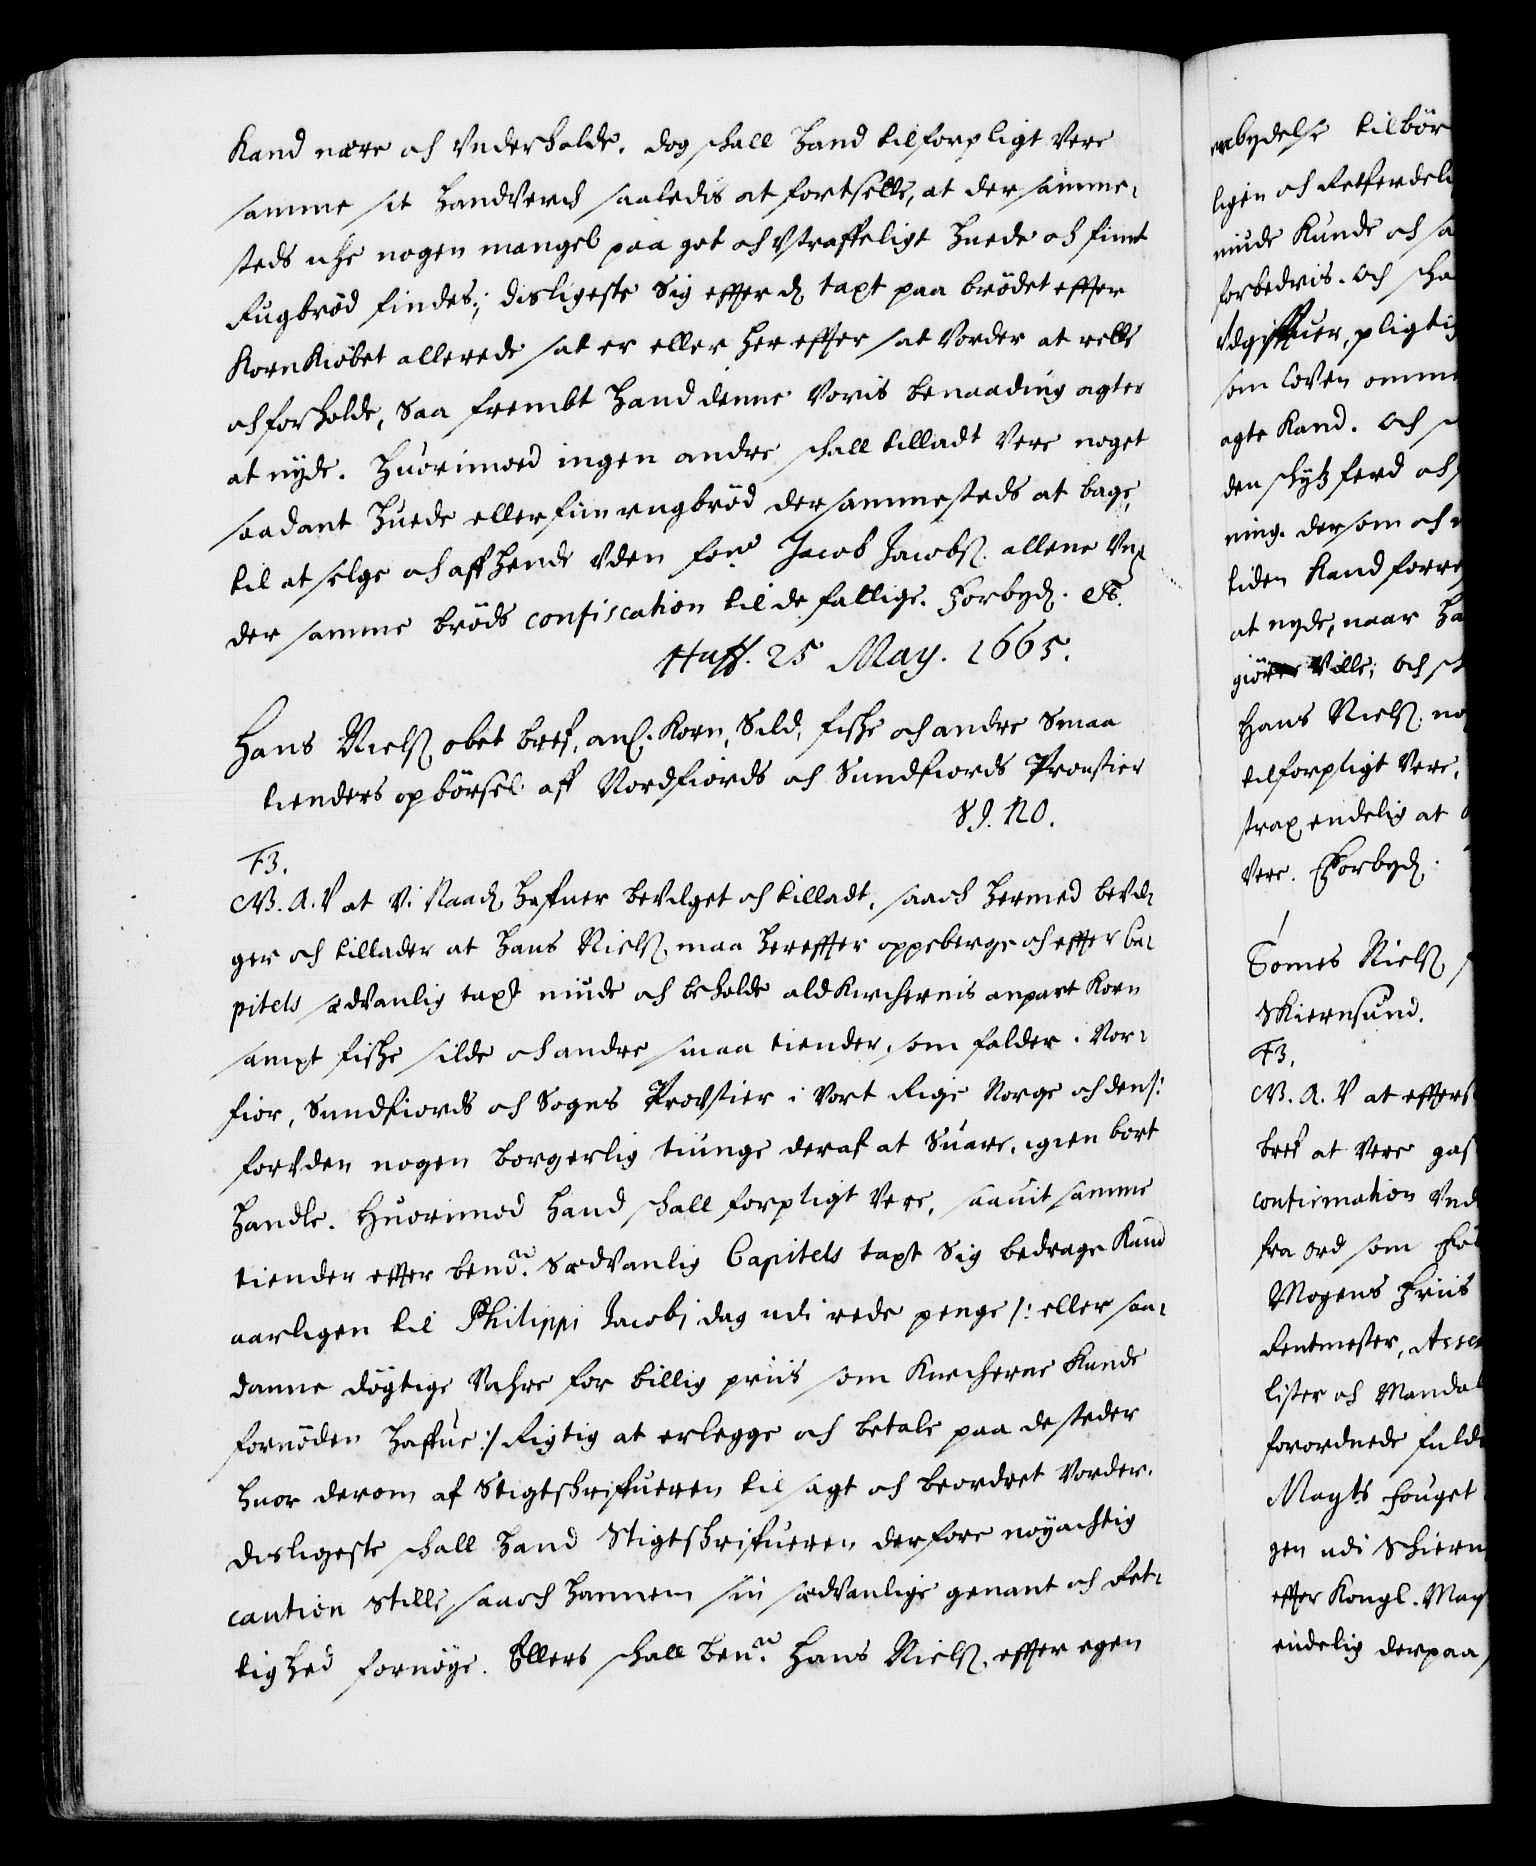 Kand nære och Vnderholde. dog schall hand tilforpligt Vere
samme sit handverch saaledis at fortsette, at der samme-
steds iche nogen mangel paa got och Vstraffeligt huede och finnt
Rugbrød findes; disligeste sig effter dend taxt paa brødet effter
Kornkiøbet allerede sat er eller her effter sat Vorder at rette
och forholde, Saa frembt hand denne Voris benaading agter
at nyde. Huorimod ingen andre schall tilladt Vere noget
saadant huede eller fiin rugbrød dersammesteds at bage,
til at selge och affhende Uden forne Jacob Jacobsen allene Vn-
der samme brøds confiscation til de fattige. Forbydendes etc.
Haff. 25 May. 1665.
Hans Nielsen obet bref, anl. Korn, Sild, fishe och andre Smaa
tienders opbørsel aff Nordfiords och Sundfiords Provstier
S.J. No.
F3.
G.A.V at Vi Naadigst haffuer bevilget och tilladt, saa och hermed bevil-
ger och tillader at Hans Nielsen maa hereffter oppeberge och effter Ca-
pitels sædvanlig taxt niude och beholde ald Kirchernis anpart Korn
sampt fishe silde och andre smaa tiender, som falder i Nor-
fior, Sundfiords och Sogns Provstier i Vort Rige Norge och den /:
forUden nogen borgerlig tiunge deraf at Suare, igien bort
handle. Huorimod hand schall forpligt Vere, saauit samme
tiender effter bente Sædvanlig Capitels taxt sig bedrage Kand
aarligen til Philippi Jacobi dag udi rede penge /: eller saa-
danne døgtige Vahre for billig priis som Kircherne Kunde
fornøden haffue :/ Rigtig at erlegge och betale paa de steder
huor derom af Stigtschriffueren til sagt och beordret Vorder.
Disligeste schall hand Stigtschriffueren derfore nøyachtig
caution stille, saa och hannem sin sædvanlige genant och Ret-
tighed fornøye. Ellers schall bente Hans Nielsen, effter egen
bydelse tilbør
ligen och Retferdeli
niude Kunde och sa
forbedris. Och scha
Udgiffuer, pligtig
som loven omme
agte Kand. Och
den schytzferd och
ning. dersom och
tiden Kand forre
at nyde, naar ha
giøre Ville; Och sch
Hans Nielsen no
tilforpligt Vere,
strax endelig at
Vere. Forbydendes
Tomes Nielsen
Skiernsund.
F3.
G.A.V at effters
bref at Vere gaf
confirmation Vnd
fra ord som
Mogens Friis
Rentmester, Asses
lister och Mandal
forordnede fuld
Mayts Fouget
gen udi Schiern
effter Kongl. May
endelig derpaa